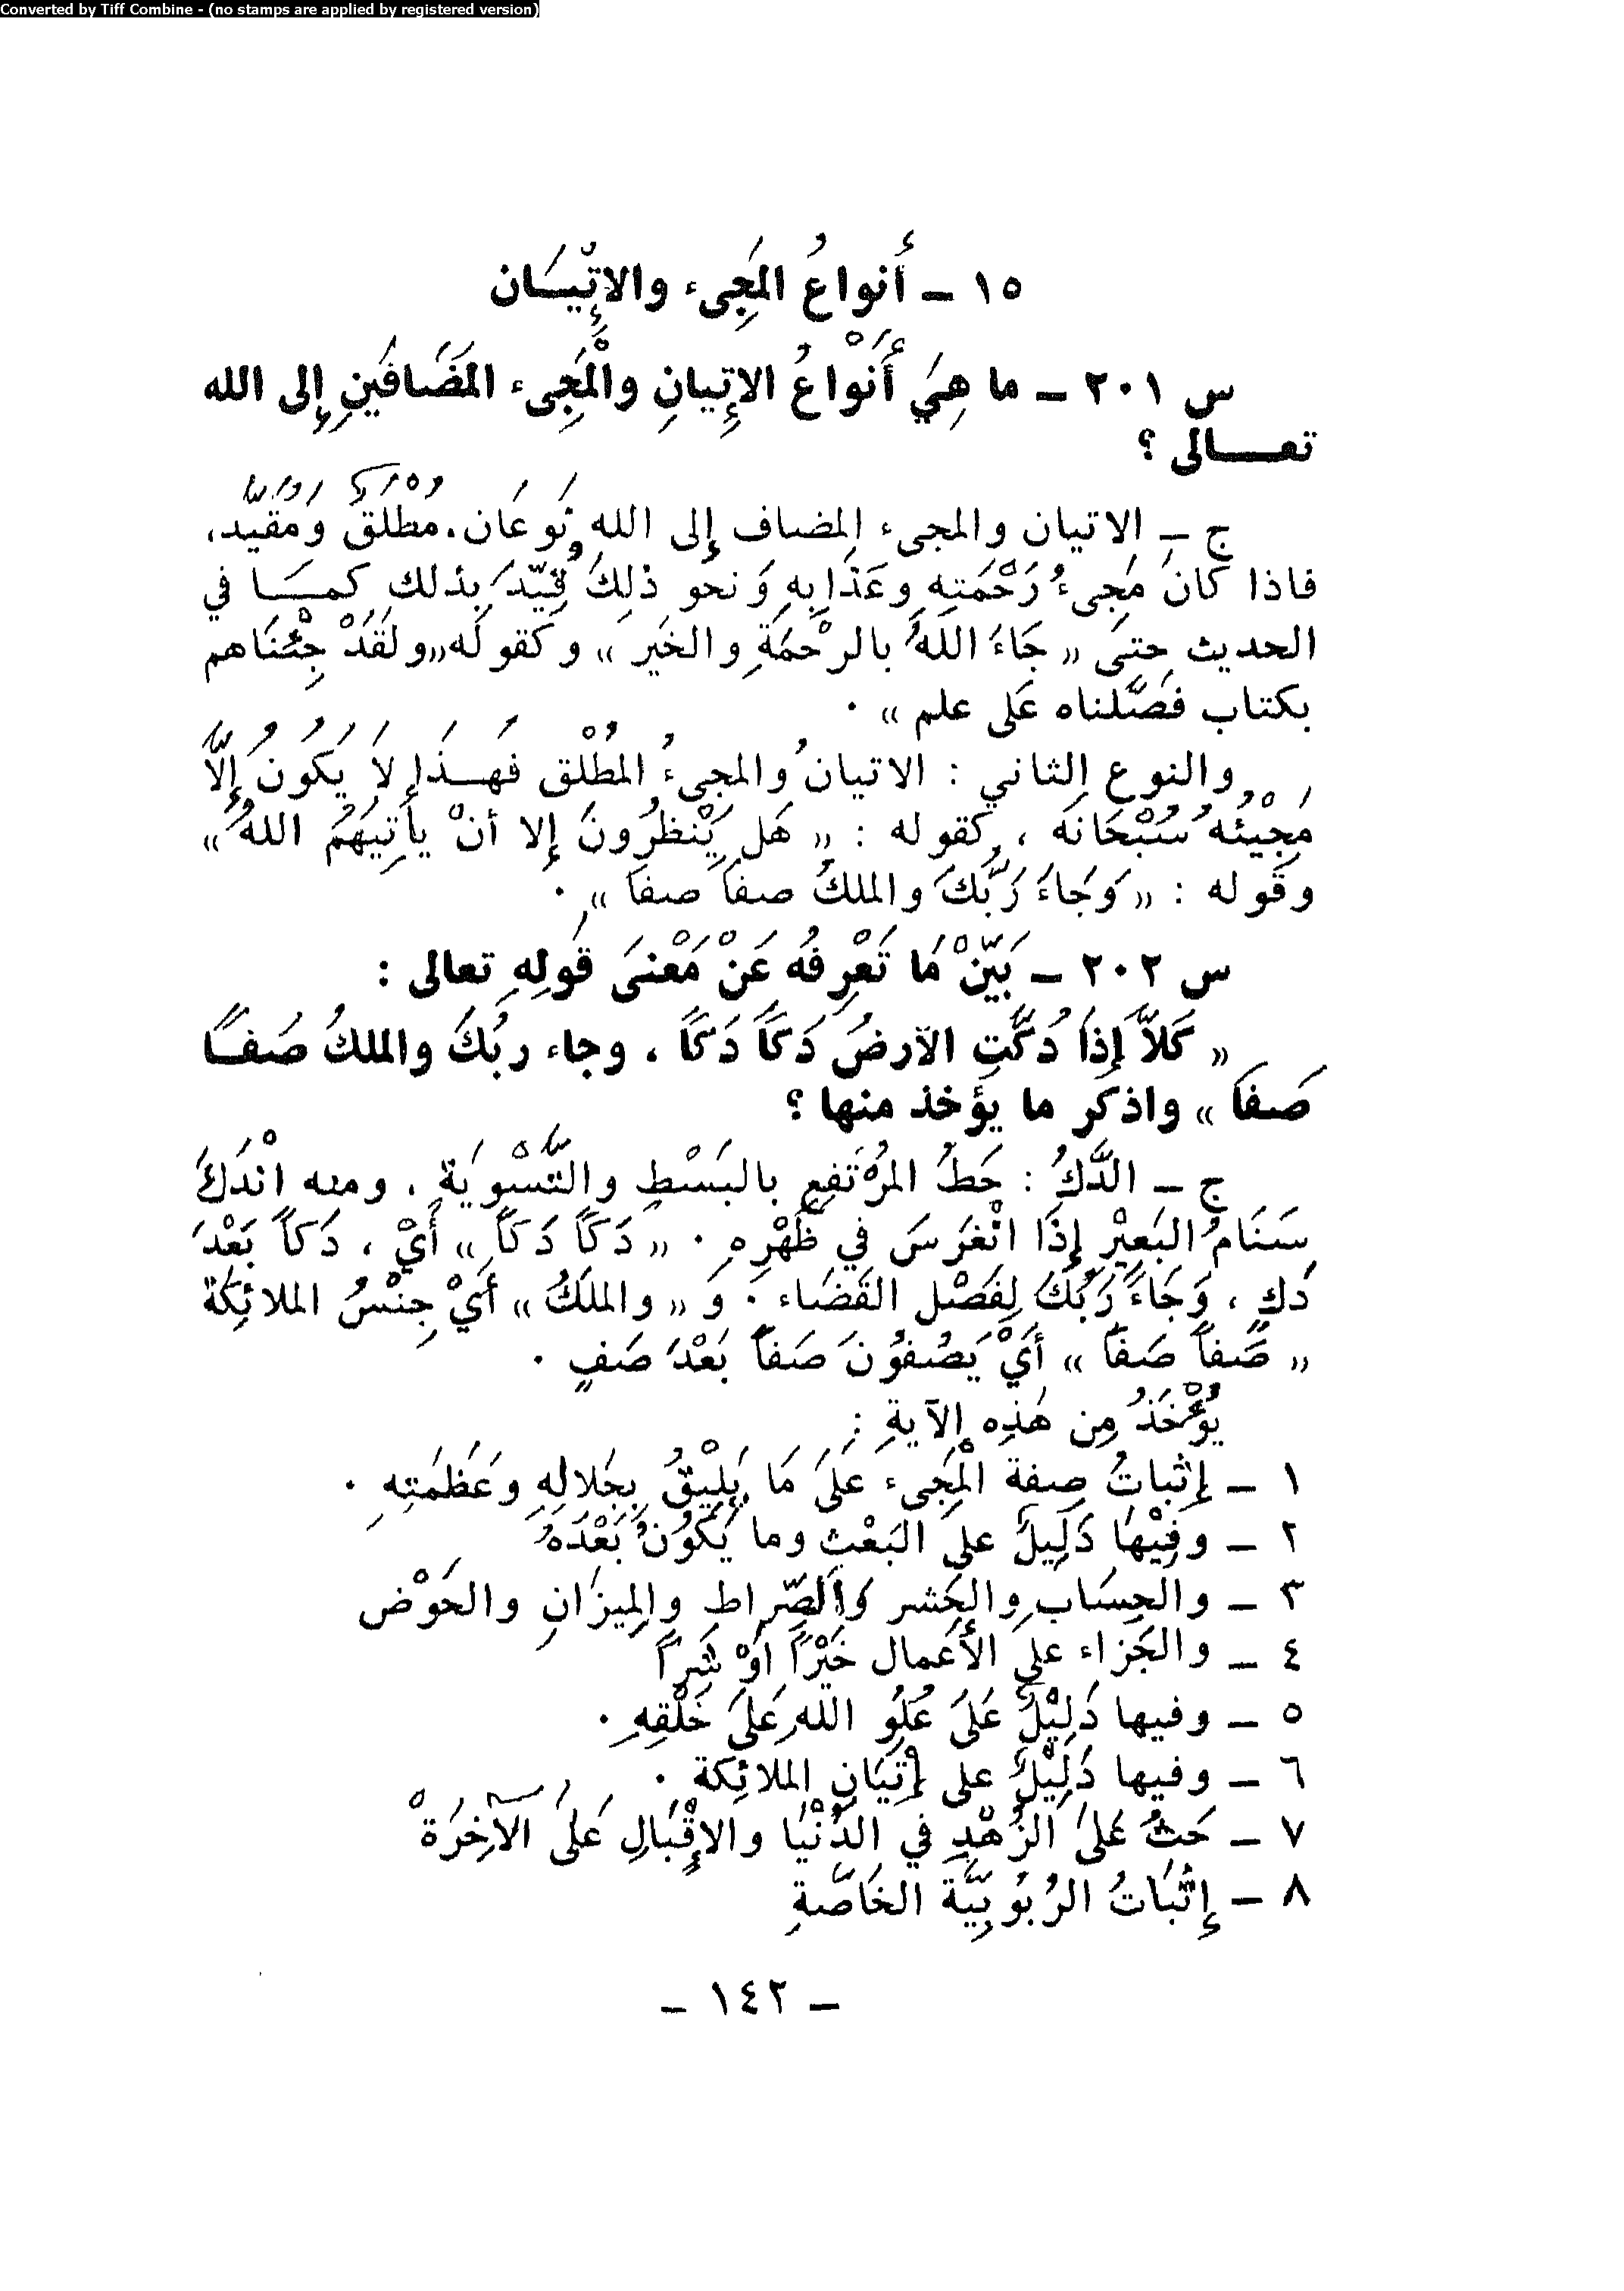 Converted by Tiff Combine - (no stamps are applied by registered version)
١٥ ــ أَنواعُ المَجِىء والاتْيَــان
س ٢٠١ ــ ما هِيَ أَنْواعُ الإتِيانِ والْمَجِىء المَضَافَينِ إِلى الله
تعــــالى ؟
ج ــ الاتيان والمجىء المضاف إِلى الله نَوعَان. مُطْلَقٌ وَمُقَيَّد،
فاذا كَانَ مَجِىءُ رَحْمَتِهِ وعَذَابِهِ وَنحو ذلِكَ قُيِّدَ بذلك كمــا في
الحديث حتى « جَاءَ اللهُ بالرحْمَةِ والخَير » وكقوله«ولقَدْ جِئْنَاهم
بكتاب فصَّلناه عَلى علم » ٠
والنوع الثاني : الاتيانُ والمجىءُ المُطْلَق فَهــذَا لاَ يَكُونُ إِلاَّ
مَجِيْئُهُ سُبْحَانَه ، كقوله : « هَل يَنْظرُونَ إِلا أَنْ يأتِيَهُمُ اللهُ »
وقوله : « وَجَاءَ رَبُّكَ والملكُ صفاً صفاً » ٠
س ٢٠٢ ــ بَيِّنْ مَا تَعْرِفُه عَنْ مَعْنىَ قَولِهِ تعالى :
« كَلاَّ إِذَا دُكَّتِ الأرضُ دَكاً دَكاً ، وجاء ربُكَ والملكُ صَفــاً
صَفاً » واذكر ما يؤخذ منها ؟
ج ــ الدَّكُ : حَطُ المُرْتَفِعِ بالبَسْطِ والتَّسْوِيَة ، ومنه انْدَكَ
سَنَامُ البَعِيْرِ إِذَا انْغَرَسَ في ظَهْرِهِ ٠ « دَكاً دَكاً » أَيْ ، دَكاً بَعْدَ
دَكٍ ، وَجَاءَ رَبُكَ لِفَصْلِ القَضَاء ٠ وَ « والمَلَكُ » أَيْ جِنْسُ الملائِكَة
« صَفاً صَفاً » أَيْ يَصُفوُنَ صَفاً بَعْدَ صَفٍ ٠
يُؤْخَذُ مِن هَذِه الآيةِ :
١ ــ إِثباتُ صِفةِ الْمَجِىء عَلىَ مَا يَلِيْقُ بِجَلالِهِ وَعَظَمَتِهِ ٠
٢ ــ وفِيْهَا دَلِيلٌ على البَعْثِ وما يَكُوْنُ بَعْدَهُ
٣ ــ والحِسَابِ والحَشر وَالصِّراطِ والمِيزَانِ والحَوْض
٤ ــ والجَزاء على الأَعمال خَيْراً أَوْ شَراً
٥ ــ وفيها دَلِيْلٌ عَلىَ عُلوِ اللهِ عَلىَ خَلْقِهِ ٠
٦ ــ وفيها دَلِيْلٌ على إِتْيَانِ الملائِكة ٠
٧ ــ حَثٌ عَلىَ الزُهْدِ في الدُنْيَا والإقْبَالِ عَلىَ الآخِرَةْ
٨ ــ إِثْبَاتُ الرُبوُبِيَّةَ الخَاصَّةِ
ــ ١٤٢ ــ